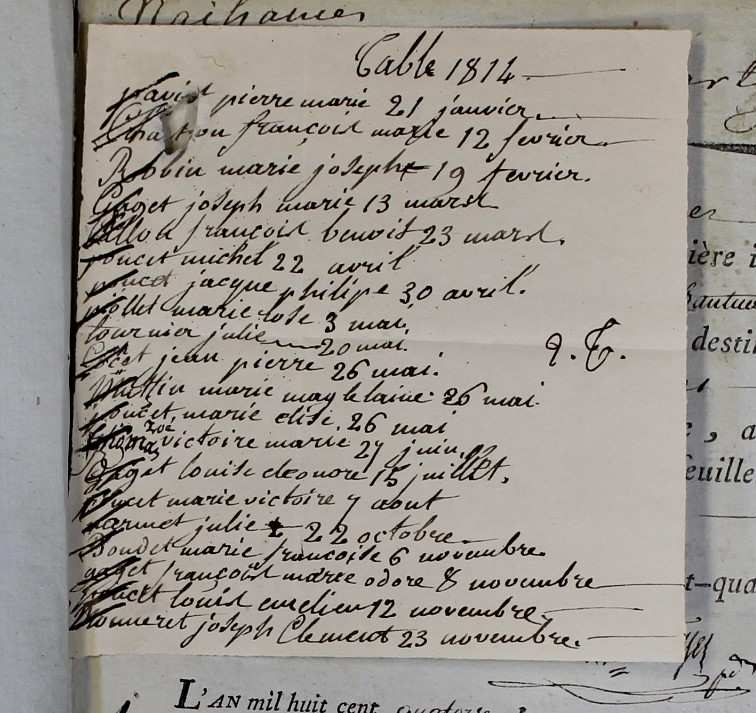 Table 1814
david pierre marie 21 janvier
françois marie 12 fevrier
Robin marie joseph 19 fevrier.
Goget joseph marie 13 mars
françois benoit 23 mars.
poncet michel 22 avril
poncet jacque philipe 30 avril.
piollet marie rose 3 mai.
tournier julie 20 mai.
jean pierre 26 mai.
J. T.
Muttin marie magdelaine 26 mai
poncet marie elise. 26 mai
Thomas Zoé victoire marie 27 juin
Goget louise eleonore 15 juillet,
poncet marie victoire 7 aout
julie 22 octobre
Boudet marie françoise 6 novembre
goget françois marie odore 8 novembre
poncet louis emelien 12 novembre
Monneret joseph Clement 23 novembre.
ière i
desti
, a
feuille
t-qua
L'AN mil huit cent quatorze